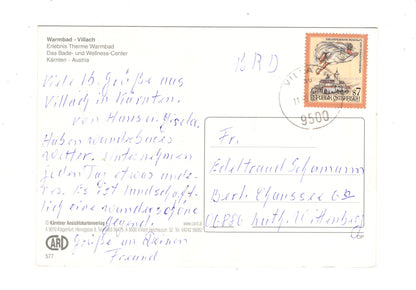 Warmbad - Villach
Erlebnis Therme Warmbad
Das Bade- und Wellness-Center
Kärnten - Austria
BRD
VILLACH
9500
REPUBLIK ÖSTERREICH
S7
Viele lb. Grüße aus
Villach in Kärnten.
von Hans u. Gisela.
Haben wunderbares
Wetter. unternehmen
jeden Tag etwas ande-
res. Es ist landschaft-
lich eine wunderschöne
Gegend.
Grüße an Deinen
Freund
Fr.
Edeltraud
Berl. Chaussee
06886 Luth. Wittenberg
© Kärntner Ansichtskartenverlag
CARD
577